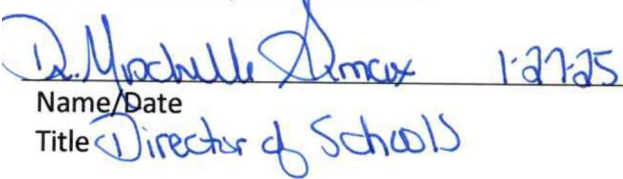 Dr. Mischelle Simcox 1-27-25
Name/Date
Title Director of Schools